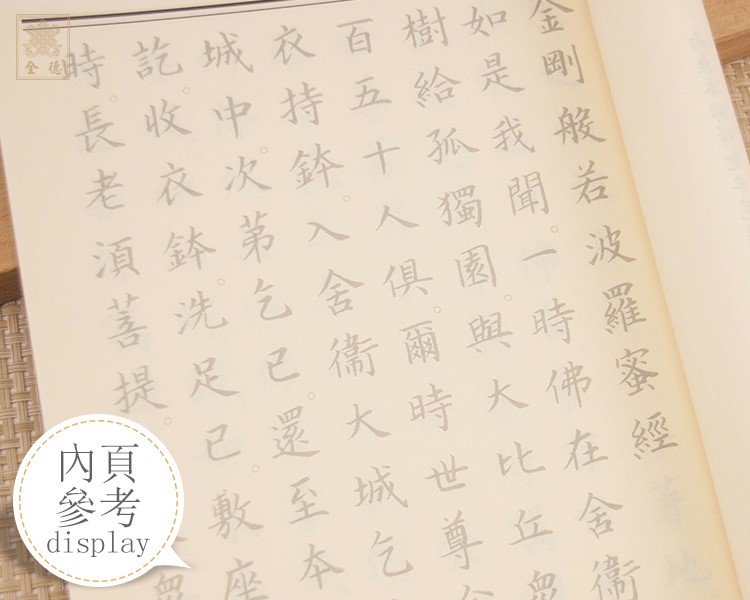 金剛般若波羅蜜經
如是我聞。一時佛在舍衞
樹給孤獨園。與大比丘眾
百五十人俱。爾時世尊
衣持鉢。入舍衞大城乞
城中。次第乞已。還至本
訖。收衣鉢。洗足已。敷座
時。長老須菩提。
全德
內頁
參考
display